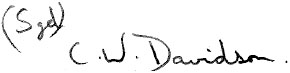 (Sgd)
C.W. Davidson.